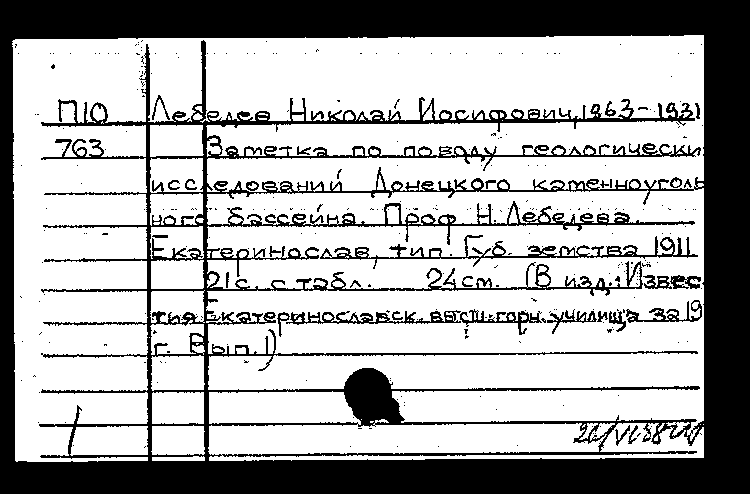 П10 Лебедев, Николай Иосифович, 1863-1931
763 Заметка по поводу геологически
исследований Донецкого каменноуголь
ного бассейна. Проф. Н. Лебедева.
Екатеринослав, тип. Губ. земства 1911
21с. с табл. 24см. (В изд.: Извес
тия Екатеринославск. высш. горн. училища за 19
г. Вып. 1)